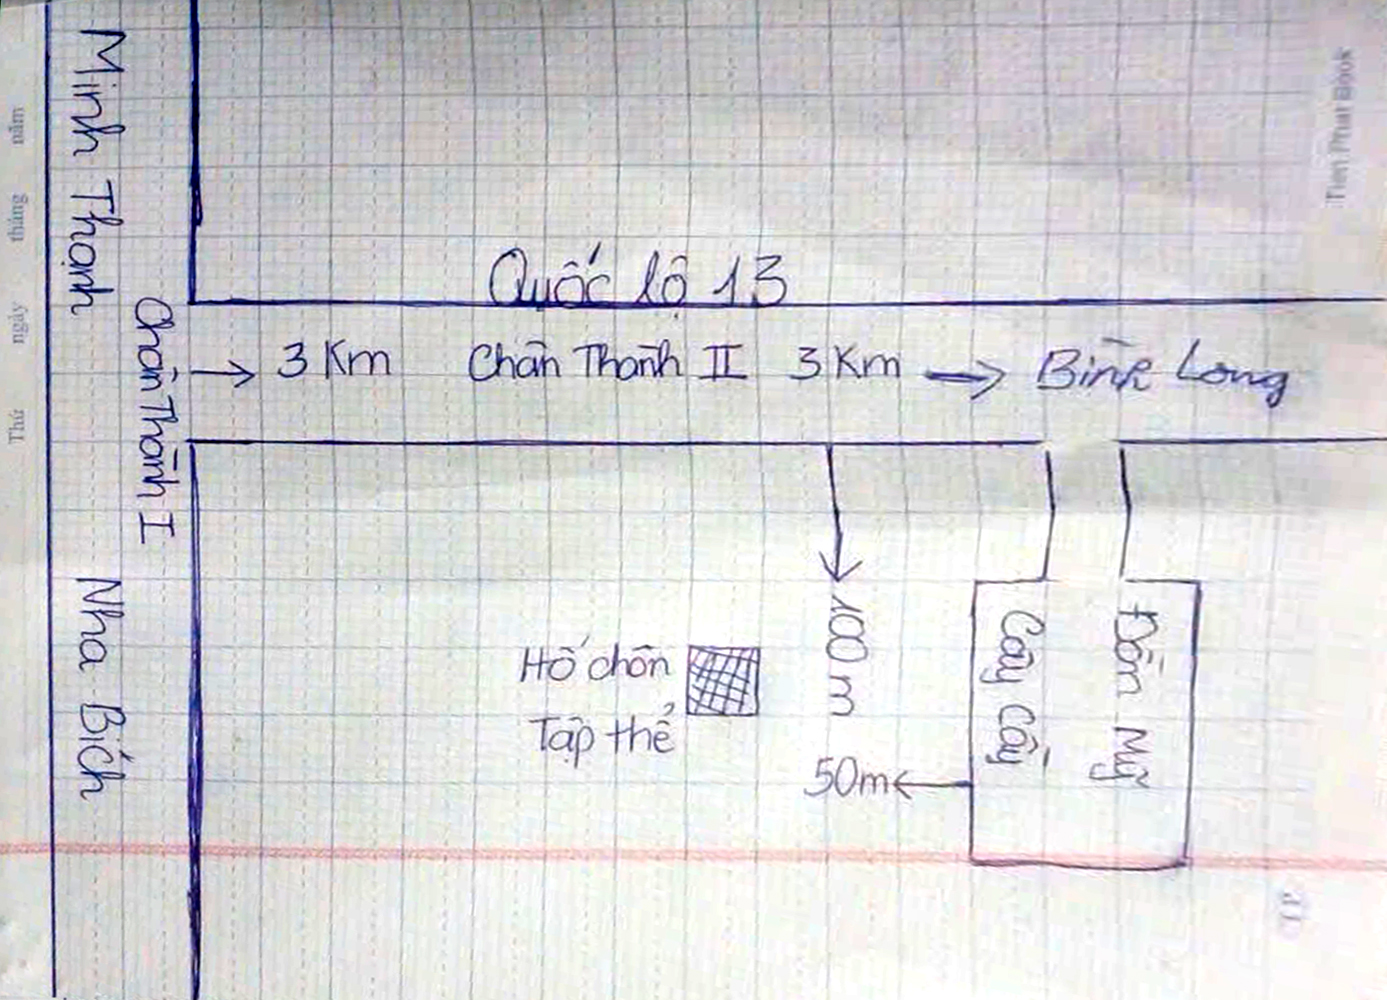 Tien Phat Book
Thứ ngày tháng năm
Minh Thạnh
Quốc lộ 13
Chơn Thành I
3 Km Chơn Thành II 3 Km
Bình Long
100 m
Hố chôn
Tập thể
Cây Cầy
Đồn Mỹ
50m
Nha Bích
T.P